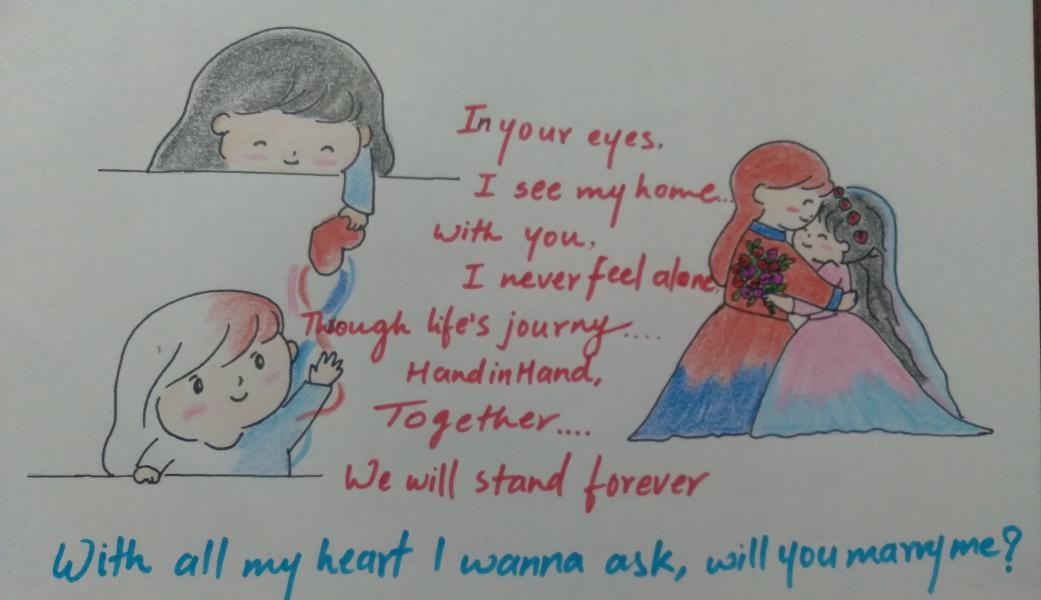 In your eyes,
I see my home...
with you,
I never feel alone,
Though life's journy....
Hand in Hand,
Together....
We will stand forever
With all my heart I wanna ask, will you marry me?